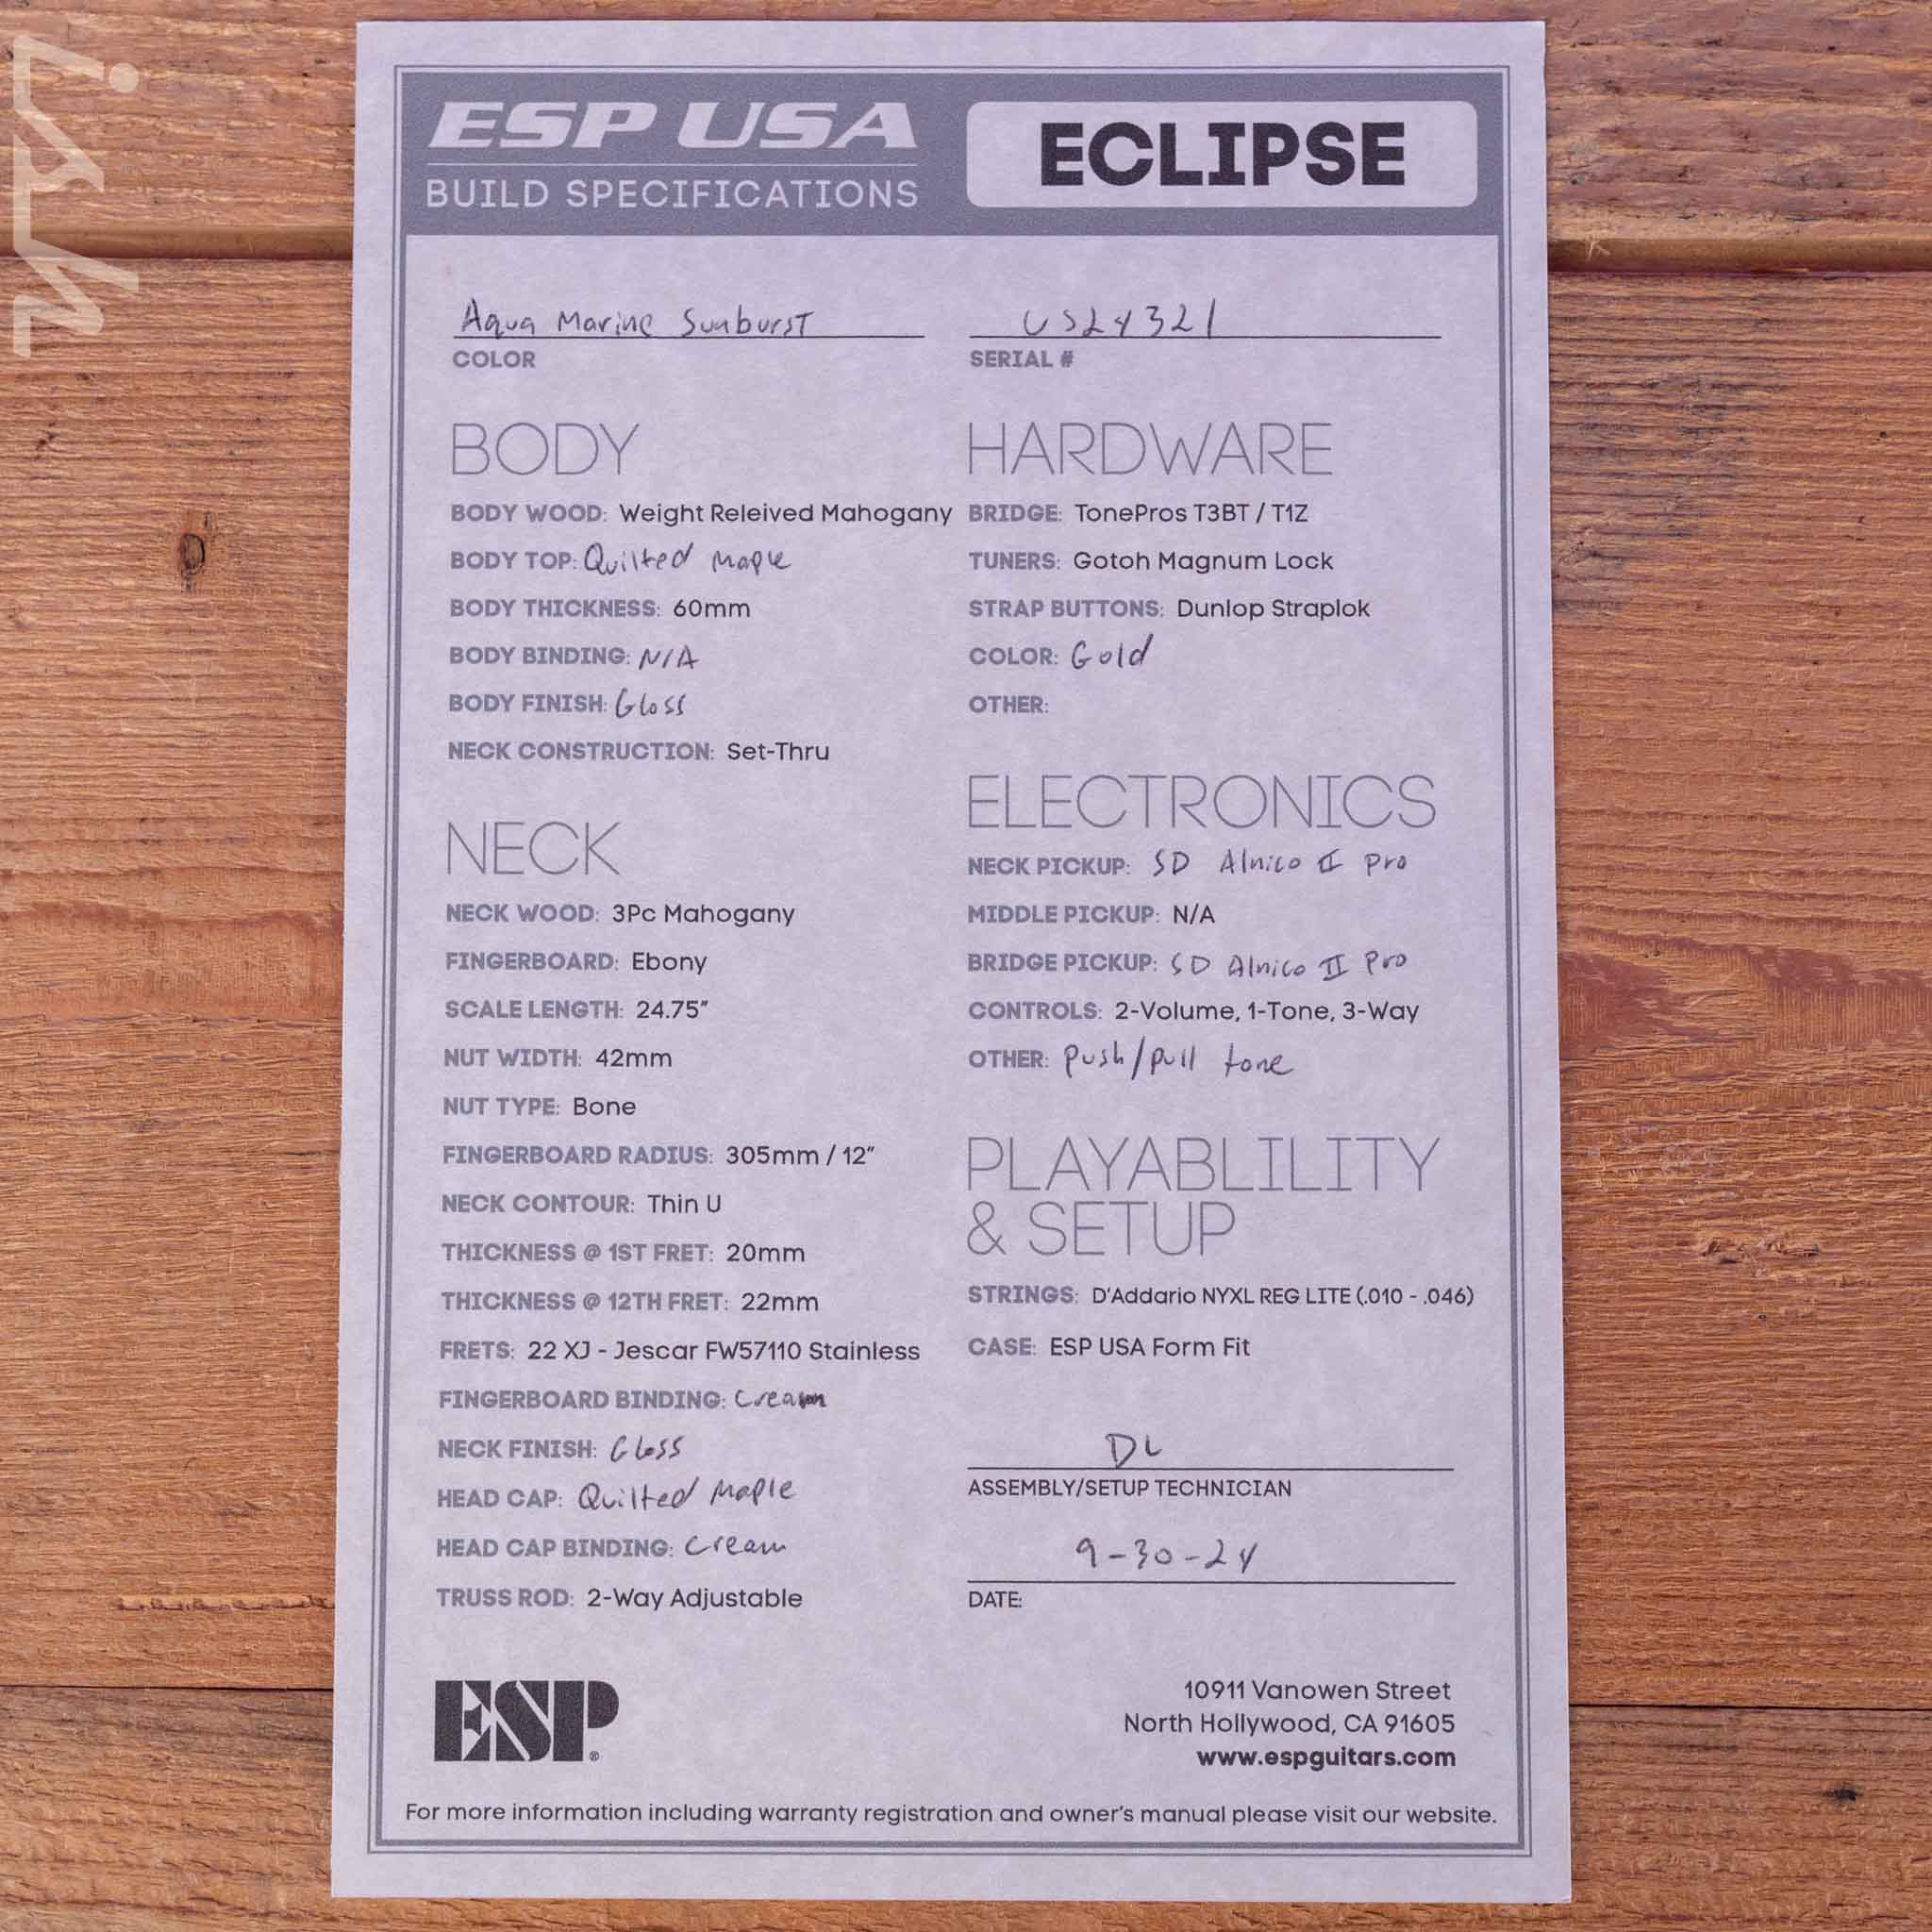 ish
ESP USA
BUILD SPECIFICATIONS
ECLIPSE
Aqua Marine Sunburst
COLOR
US24321
SERIAL #
BODY
BODY WOOD: Weight Releived Mahogany
BODY TOP: Quilted Maple
BODY THICKNESS: 60mm
BODY BINDING: N/A
BODY FINISH: Gloss
NECK CONSTRUCTION: Set-Thru
NECK
NECK WOOD: 3Pc Mahogany
FINGERBOARD: Ebony
SCALE LENGTH: 24.75"
NUT WIDTH: 42mm
NUT TYPE: Bone
FINGERBOARD RADIUS: 305mm / 12"
NECK CONTOUR: Thin U
THICKNESS @ 1ST FRET: 20mm
THICKNESS @ 12TH FRET: 22mm
FRETS: 22 XJ - Jescar FW57110 Stainless
FINGERBOARD BINDING: Cream
NECK FINISH: Gloss
HEAD CAP: Quilted Maple
HEAD CAP BINDING: Cream
TRUSS ROD: 2-Way Adjustable
HARDWARE
BRIDGE: TonePros T3BT / T1Z
TUNERS: Gotoh Magnum Lock
STRAP BUTTONS: Dunlop Straplok
COLOR: Gold
OTHER:
ELECTRONICS
NECK PICKUP: SD Alnico II Pro
MIDDLE PICKUP: N/A
BRIDGE PICKUP: SD Alnico II Pro
CONTROLS: 2-Volume, 1-Tone, 3-Way
OTHER: Push/Pull tone
PLAYABLILITY
& SETUP
STRINGS: D'Addario NYXL REG LITE (.010 - .046)
CASE: ESP USA Form Fit
DL
ASSEMBLY/SETUP TECHNICIAN
9-30-24
DATE:
ESP®
10911 Vanowen Street
North Hollywood, CA 91605
www.espguitars.com
For more information including warranty registration and owner's manual please visit our website.